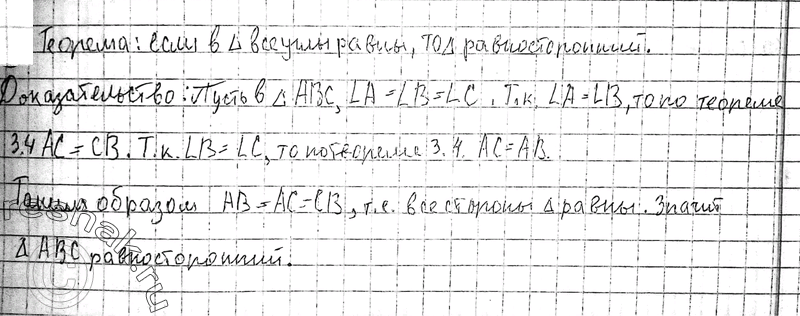 Теорема: если в Δ все углы равны, то Δ равносторонний.
Доказательство: Пусть в Δ ABC, ∠A = ∠B = ∠C. Т.к. ∠A = ∠B, то по теореме
3.4 AC = CB. Т.к. ∠B = ∠C, то по теореме 3.4. AC = AB.
Таким образом AB = AC = CB, т.е. все стороны Δ равны. Значит
Δ ABC равносторонний.
reshak.ru